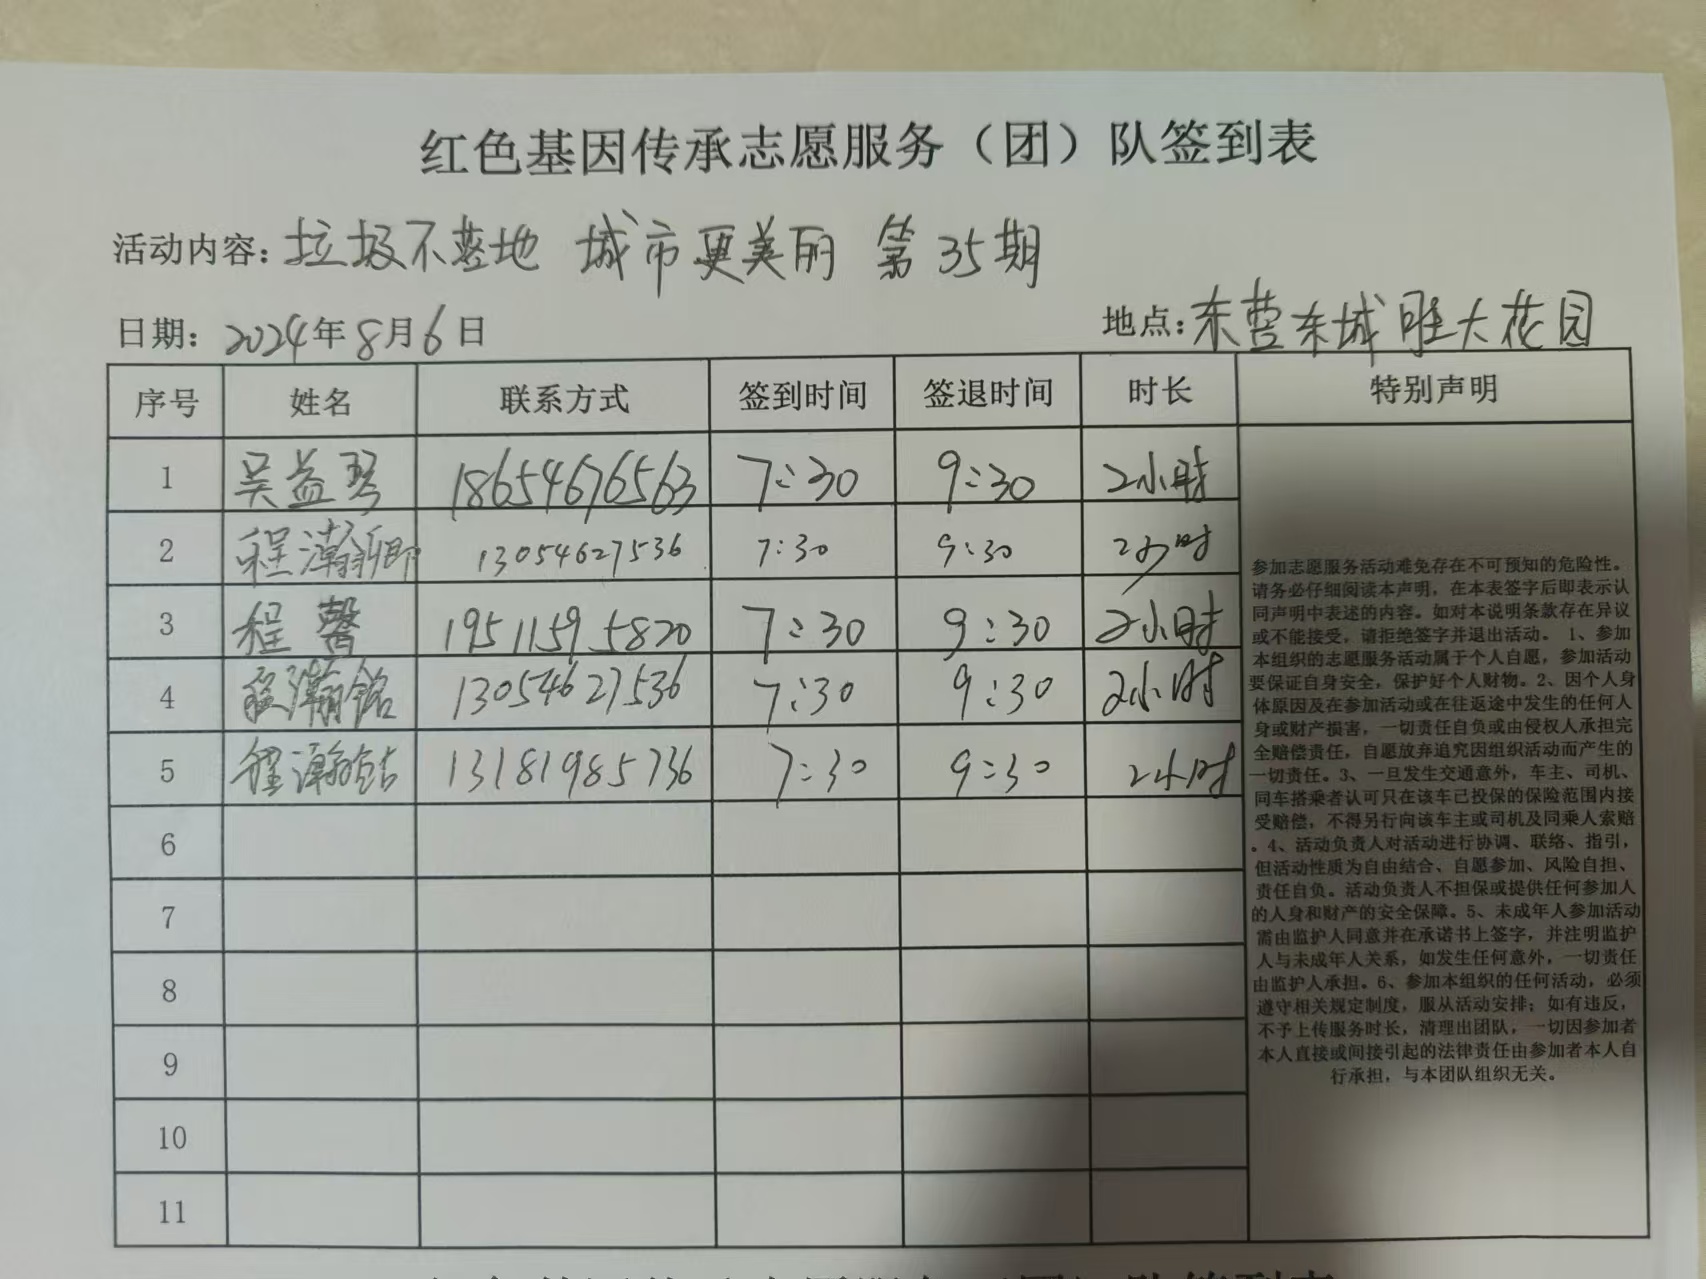 红色基因传承志愿服务（团）队签到表
活动内容：垃圾不落地 城市更美丽 第35期
日期：2024年8月6日 地点：东营东城胜大花园
序号 姓名 联系方式 签到时间 签退时间 时长 特别声明
1 吴益琴 18654676563 7:30 9:30 2小时
2 程瀚卿 13054627536 7:30 9:30 2小时
3 程馨 19511595820 7:30 9:30 2小时
4 程瀚铭 13054627536 7:30 9:30 2小时
5 程瀚钴 13181985736 7:30 9:30 2小时
6
7
8
9
10
11
参加志愿服务活动难免存在不可预知的危险性。
请务必仔细阅读本声明，在本表签字后即表示认
同声明中表述的内容。如对本说明条款存在异议
或不能接受，请拒绝签字并退出活动。 1、参加
本组织的志愿服务活动属于个人自愿，参加活动
要保证自身安全，保护好个人财物。2、因个人身
体原因及在参加活动或在往返途中发生的任何人
身或财产损害，一切责任自负或由侵权人承担完
全赔偿责任，自愿放弃追究因组织活动而产生的
一切责任。3、一旦发生交通意外，车主、司机、
同车搭乘者认可只在该车已投保的保险范围内接
受赔偿，不得另行向该车主或司机及同乘人索赔
。4、活动负责人对活动进行协调、联络、指引，
但活动性质为自由结合、自愿参加、风险自担、
责任自负。活动负责人不担保或提供任何参加人
的人身和财产的安全保障。5、未成年人参加活动
需由监护人同意并在承诺书上签字，并注明监护
人与未成年人关系，如发生任何意外，一切责任
由监护人承担。6、参加本组织的任何活动，必须
遵守相关规定制度，服从活动安排；如有违反，
不予上传服务时长，清理出团队，一切因参加者
本人直接或间接引起的法律责任由参加者本人自
行承担，与本团队组织无关。